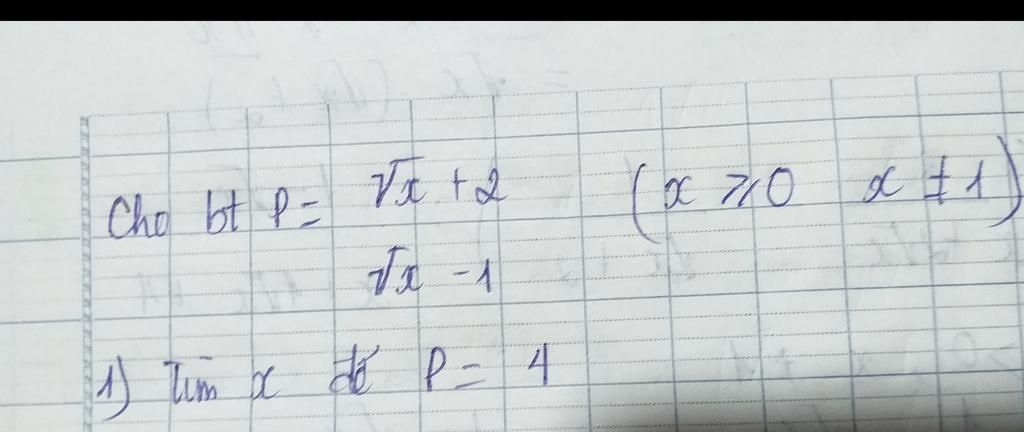 Cho bt P = √x + 2 (x ≥ 0 x ≠ 1)
√x - 1
1) Tìm x để P = 4